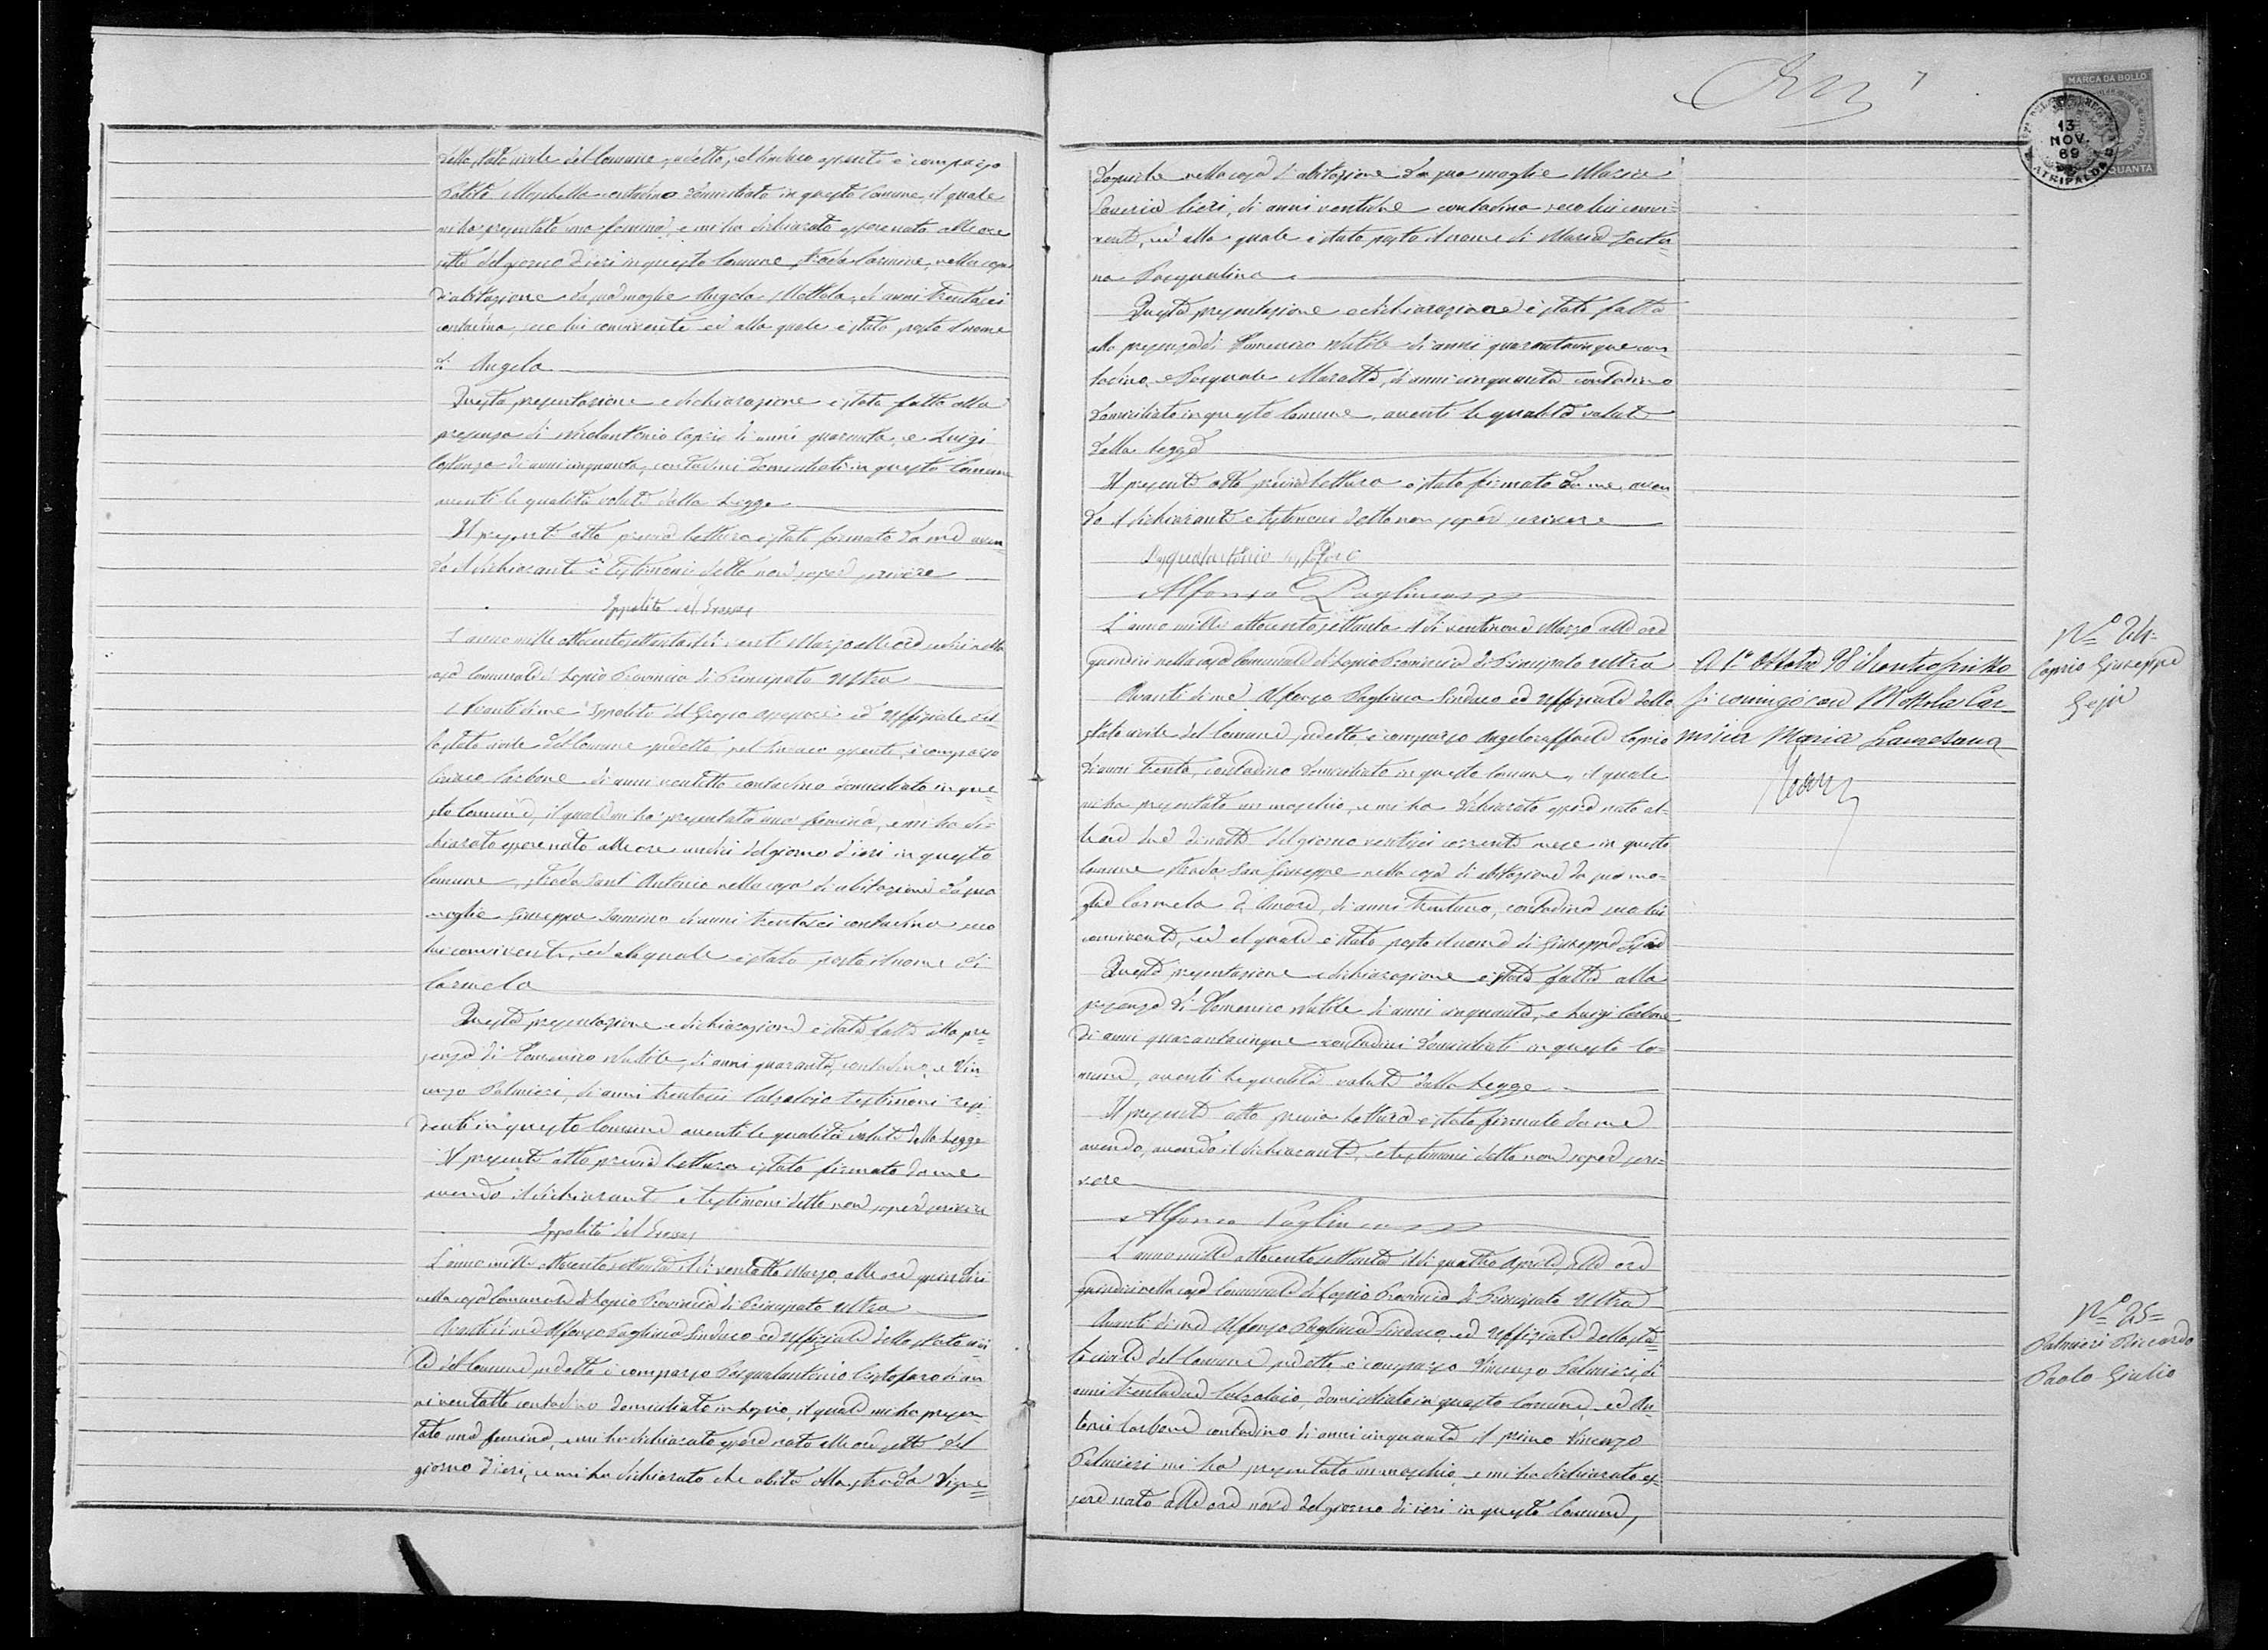 dello stato civile del Comune sudetto, pel Sindaco assente è comparso
Moschella contadino domiciliato in questo Comune, il quale
mi ha presentato una femina, e mi ha dichiarato essere nata alle ore
sette del giorno d'ieri in questo Comune, strada Carmine, nella casa
d'abitazione da sua moglie Angela Mottola, di anni trentasei
contadina, seco lui convivente ed alla quale è stato posto il nome
di Angela
Questa presentazione e dichiarazione è stata fatta alla
presenza di Caprio di anni quaranta, e Luigi
di anni cinquanta, contadini domiciliati in questo Comune
aventi le qualità volute dalla Legge
Il presente atto previa lettura è stato firmato da me aven=
do il dichiarante e testimoni detto non sapere scrivere
Ippolito del Grosso
L'anno mille ottocento settanta il dì venti Marzo alle ore nella
casa Comunale di Lapio Provincia di Principato Ultra
Avanti di me Ippolito del Grosso assessore ed Uffiziale del=
lo stato civile del Comune sudetto, pel Sindaco assente, è comparso
Carbone di anni ventotto contadino domiciliato in que=
sto Comune, il quale mi ha presentata una femina, e mi ha di=
chiarato essere nata alle ore undici del giorno d'ieri in questo
Comune, strada Sant'Antonio nella casa di abitazione da sua
moglie Giuseppa di anni trentasei contadina seco
lui convivente, ed alla quale è stato posto il nome di
Carmela
Questa presentazione e dichiarazione è stata fatta alla pre=
senza di Domenico Natile, di anni quaranta, contadino, e Vin=
cenzo Palmieri, di anni trentasei Calzolaio testimoni resi=
denti in questo Comune aventi le qualità volute dalla Legge
Il presente atto previa lettura è stato firmato da me
avendo il dichiarante e testimoni detto non sapere scrivere
Ippolito del Grosso
L'anno mille ottocento settanta il dì ventotto Marzo, alle ore quindici
nella casa Comunale di Lapio Provincia di Principato Ultra
Avanti di me Alfonso Pagliuca Sindaco ed Uffiziale dello stato civi=
le del Comune sudetto è comparso Pasqualantonio Cristofaro di an=
ni ventotto contadino domiciliato in Lapio, il quale mi ha presen=
tato una femina, e mi ha dichiarato essere nata alle ore sette del
giorno d'ieri, e mi ha dichiarato che abita alla strada Vigne=
7
MARCA DA BOLLO
13
NOV.
69
ATRIPALDA
QUANTA
nella casa d'abitazione da sua moglie Maria
Saveria Cieri, di anni contadina seco lui convi=
vente, ed alla quale è stato posto il nome di Maria
na Pasqualina
Questa presentazione e dichiarazione è stata fatta
alla presenza di Domenico Natile di anni quarantacinque con=
tadino, e Pasquale Maratta, di anni cinquanta contadino
domiciliato in questo Comune, aventi le qualità volute
dalla legge
Il presente atto previa lettura è stato firmato da me, aven=
do il dichiarante e testimoni detto non sapere scrivere
Pasqualantonio
Alfonso Pagliuca
L'anno mille ottocento settanta il dì ventinove Marzo alle ore
quindici nella casa Comunale di Lapio Provincia di Principato Ultra
Avanti di me Alfonso Pagliuca Sindaco ed Uffiziale dello
stato civile del Comune sudetto, è comparso Angeloraffaele Caprio
di anni trenta, contadino domiciliato in questo Comune, il quale
mi ha presentato un maschio, e mi ha dichiarato essere nato al=
le ore due di notte del giorno ventisei corrente mese in questo
Comune strada San Giuseppe nella casa di abitazione da sua mo=
glie Carmela D'Amore, di anni trentuno, contadina seco lui
convivente, ed al quale è stato posto il nome di Giuseppe Gesù
Questa presentazione e dichiarazione è stata fatta alla
presenza di Domenico Natile di anni cinquanta, e Luigi Carbone
di anni quarantacinque contadini domiciliati in questo Co=
mune, aventi le qualità volute dalla Legge
Il presente atto previa lettura è stato firmato da me
avendo, avendo il dichiarante, e testimoni detto non sapere scri=
vere
Alfonso Pagliuca
L'anno mille ottocento settanta il dì quattro Aprile, alle ore
quindici nella casa Comunale di Lapio Provincia di Principato Ultra
Avanti di me Alfonso Pagliuca Sindaco, ed Uffiziale dello sta=
to civile del Comune sudetto è comparso Vincenzo Palmieri, di
anni trentadue Calzolaio, domiciliato in questo Comune, ed An=
tonio Carbone contadino di anni cinquanta il primo Vincenzo
Palmieri mi ha presentato un maschio e mi ha dichiarato es=
sere nato alle ore nove del giorno di ieri in questo Comune,
A 1° Ottobre 98 il controscritto
si coniugò con Mottola Car
Maria
N° 24=
Caprio Giuseppe
Gesù
N° 25=
Palmieri Riccardo
Paolo Giulio